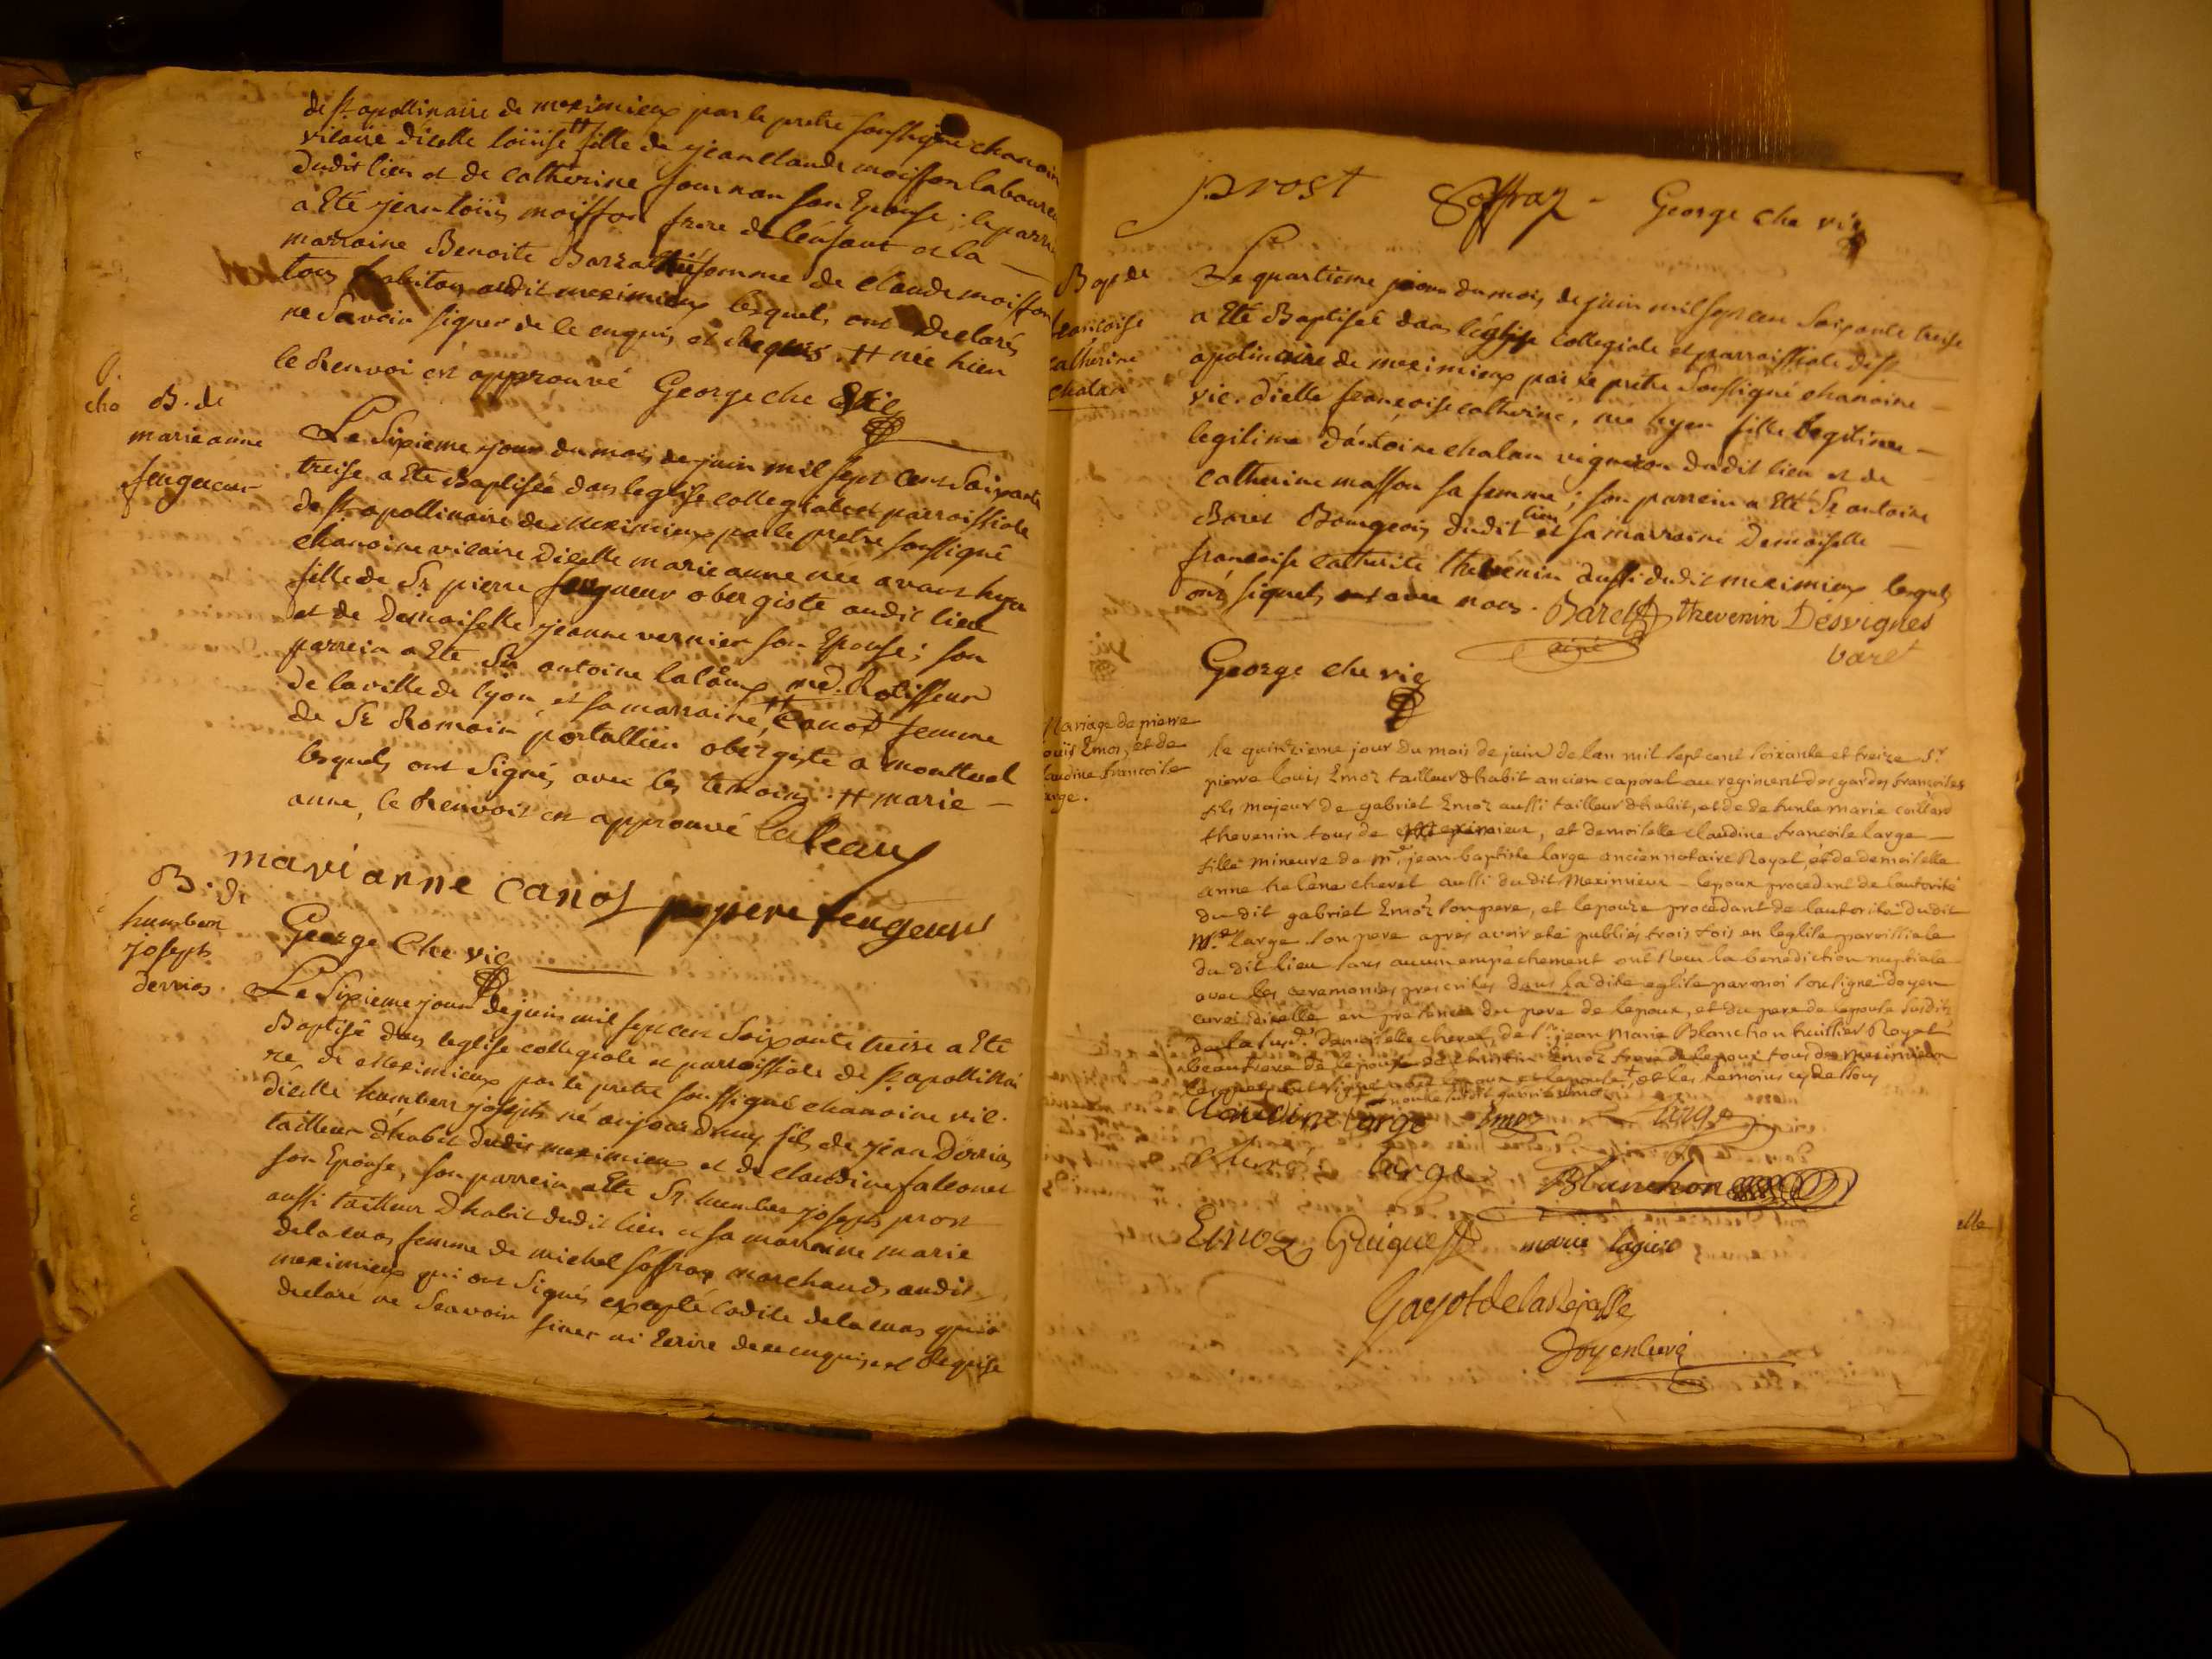 de st apollinaire de meximieux par le pretre soussigné chanoin
vicaire dicelle loüise # fille de jean claude moisson laboureu
dudit lieu et de catherine journan son Epouse ; le parri
a Eté jean loüis moisson frere de lenfant et la —
marraine Benoite femme de claude moisson
tous habitans audit meximieux lesquels ont declarés
ne Savoir signer de ce enquis et Requis . # née hier
le Renvoi est approuvé George che vic
B. de
marie anne
feugueur
Le Sixieme jour du mois de juin mil sept cent Soixante
treise a Eté Baptisée dans leglise collegiale et parroissiale
de st apollinaire de Meximieux par le pretre soussigné
chanoine vicaire dicelle marie anne née avant hyer
fille de Sr pierre feugueur obergiste audit lieu
et de Demoiselle jeanne vernier son Epouse ; son
parrein a Eté Sr antoine md. Rotisseur
de la ville de lyon, et sa marraine, # Canot femme
de Sr Romain portallier obergiste a montluel
lesquels ont Signés avec les temoins . # marie —
anne, le Renvoit est approuvé
mari anne canot pere feugeur
George Che vic
B. de
humbert
joseph
derrios
Le Sixieme jour de juin mil sept cent Soixante treise a Eté
Baptisé dans leglise collegiale et parroissiale de st apollinai
re, de Meximieux par le pretre soussigné chanoine vic.
dicelle humbert joseph né aujourdhuy fils de jean Derrios
tailleur dhabit dudit meximieux et de claudine falconet
son Epouse, son parrein a Eté Sr. humbert joseph prost
aussi tailleur dhabit dudit lieu et sa marraine marie
delamas femme de michel soffray marchand audit
meximieux qui ont Signés excepté ladite delamas qui a
declaré ne Scavoir siner ni Ecrire de ce enquise et Requise
prost Soffray - George che vic
Bap de
francoise
catherine
chalan
Le quartieme jour du mois de juin mil sept cen Soixante treise
a Eté Baptisée dans léglise collegiale et parroissiale de st
apolinaire de meximieux par le prêtre Soussigné chanoine —
vic. dicelle francoise catherine, née hyer fille legitime —
legitime dántoine chalan vigneron dudit lieu et de
catherine masson sa femme ; son parrein a Eté Sr antoine
Baret Bourgeois dudit lieu et sa marraine Demoiselle —
francoise catherine thevenin aussi dudit meximieux lesquels
ont signés avec nous . Baret thevenin Desvignes
ainé varet
George che vic
Mariage de pierre
ouis Emoz, et de
laudine francoise
arge .
le quinzieme jour du mois de juin de lan mil sept cent soixante et treize Sr
pierre louis Emoz tailleur dhabit ancien caporal au regiment des gardes francoises
fils majeur de gabriel Emoz aussi tailleur dhabit, et de defunte marie coillard
thevenin tous de Meximieux, et demoiselle claudine francoise large —
fille mineure de Me jean baptiste large ancien notaire Royal, et de demoiselle
anne helene chevet aussi du dit Meximieux – lepoux procedant de lautorité
du dit gabriel Emoz son pere, et lepouze procedant de lautorité dudit
Me large son pere apres avoir eté publiés trois fois en leglise paroissiale
du dit lieu sans aucun empechement ont recu la benediction nuptiale
avec les ceremonies prescrites dans la dite eglise par moi soussigné doyen
curé dicelle en presence du pere de lepoux, et du pere de lepouse susdits
de la susd. demoiselle chevet, de Sr jean Marie Blanchon huissier Royal
beaufrere de lepouse Emoz frere de lepoux tous de Meximieux
lepoux et lepouse +, et les temoins cy dessous
Claudine large Emoz large
large Blanchon
Emoz Guigue marie lagier
Gayot de la Rejasse
Doyen curé